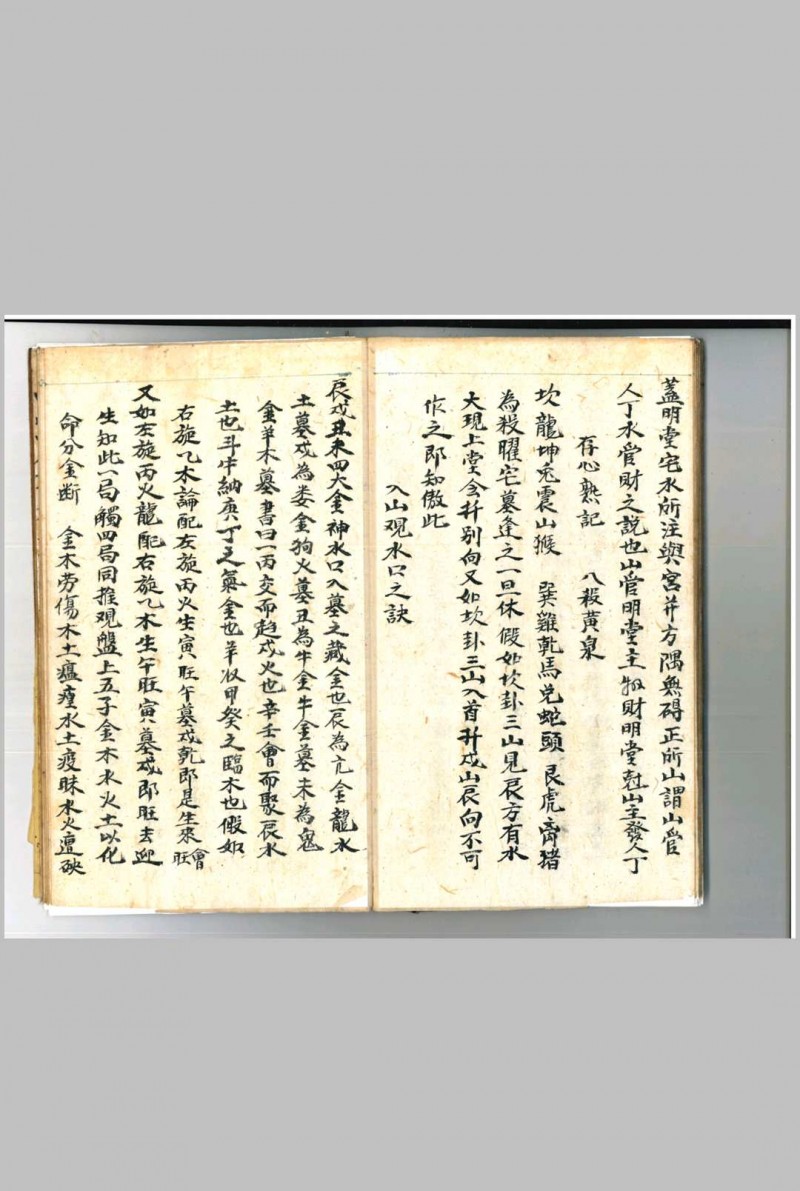 蓋明堂宅水所注與宮井方隅無碍正所山謂山管
人丁水管財之說也山管明堂主物財明堂尅山主發人丁
存心熟記　八殺黃泉
坎龍坤兎震山猴　巽雞乾馬兌蛇頭　艮虎离猪
為殺曜宅墓逢之一旦休　假如坎卦三山見辰方有水
大現上堂会并別向又如坎卦三山入首升戍山辰向不可
作之即知倣此
入山观水口之訣
辰戍丑未四大金神水口入墓之藏金也辰為亢金龍水
土墓戍為娄金狗火墓丑為牛金牛金墓未為鬼
金羊木墓書曰一丙交而趋戍火也辛壬會而聚辰水
土也斗牛納庚丁之氣金也羊収甲癸之臨木也假如
右旋乙木論配左旋丙火生寅旺午墓戍乾即是生來會旺
又如左旋丙火龍配右旋乙木生午旺寅墓戍即旺去迎
生知此一局觸四局同推观盤上五子金木水火土以化
命分金断　金木劳傷木土瘟㾮水土疫昧水火遭殃